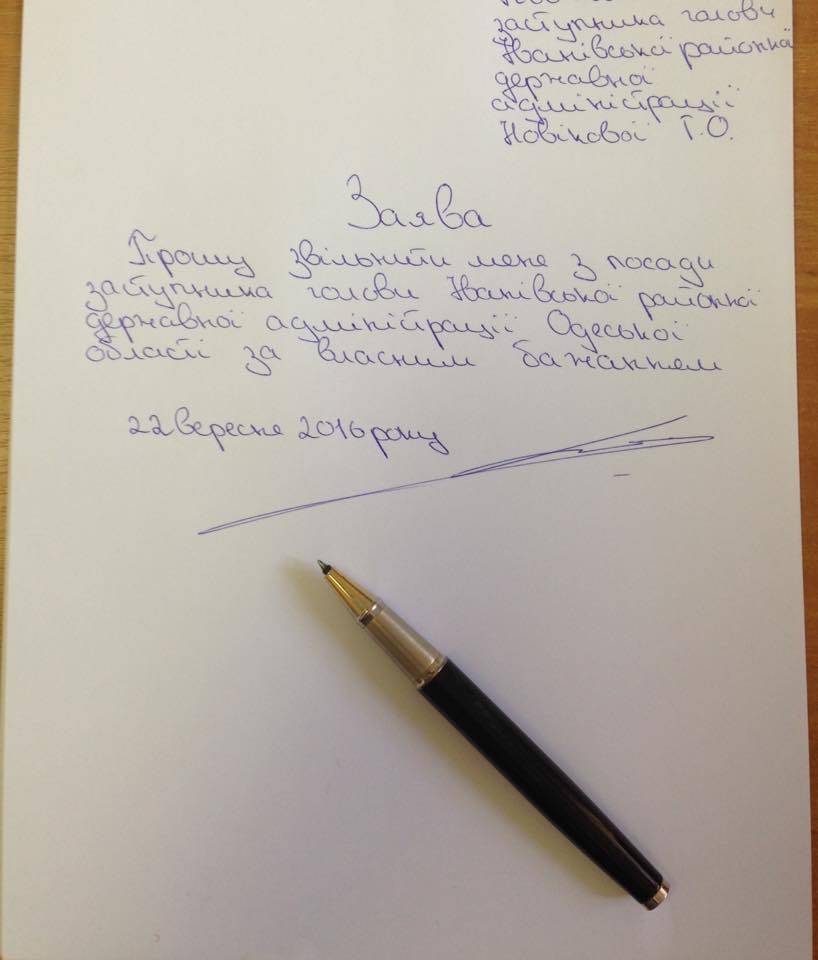 заступника голови
Іванівської районної
державної
адміністрації
Новікової Т.О.
Заява
Прошу звільнити мене з посади
заступника голови Іванівської районної
державної адміністрації Одеської
області за власним бажанням
22 вересня 2016 року